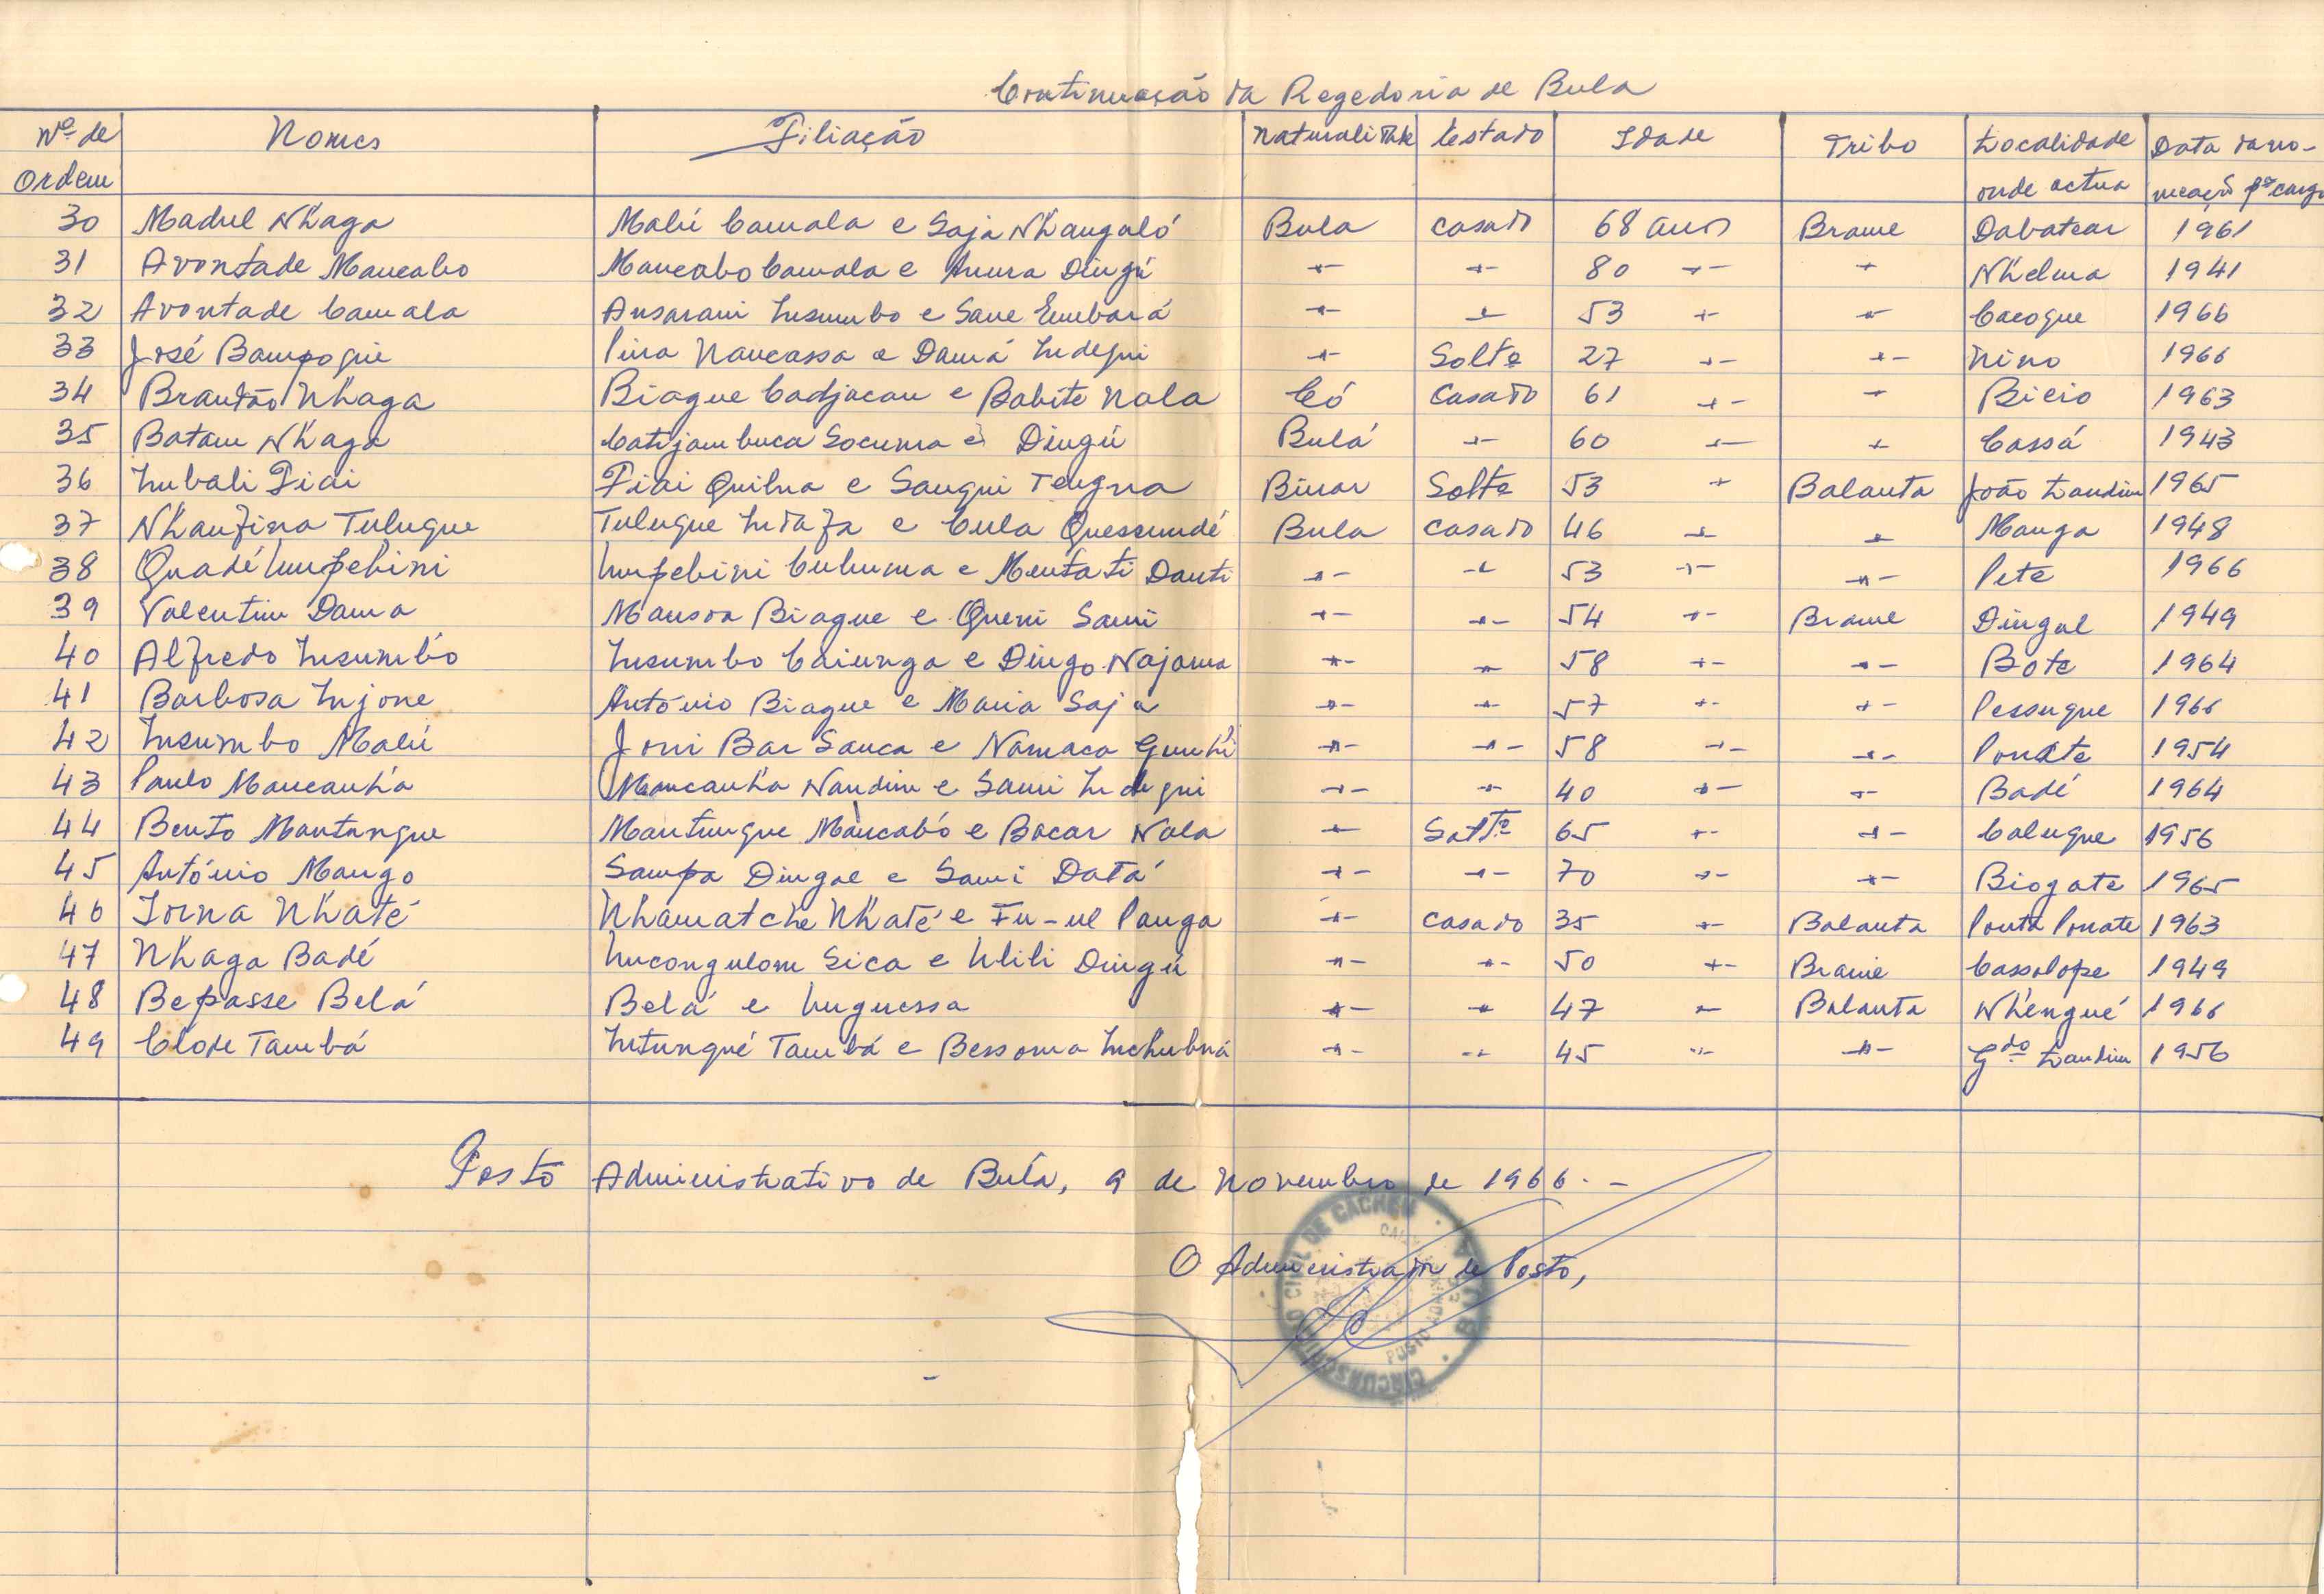 Continuação da Regedoria de Bula
Nº de Ordem Nomes Filiação Naturalidade Estado Idade Tribo Localidade onde actua Data da nomeação pª cargo
30 Madul N'haga Malú Camala e Saja N'hangaló Bula casado 68 anos Brame Dabatear 1961
31 Avontade Mancabo Mancabo Camala e Anura Dingú -"- -"- 80 -"- -"- N'helma 1941
32 Avontade Camala Ansarani Insumbo e Sane Embará -"- -"- 53 -"- -"- Cacoque 1966
33 José Bampoqui Pina Nancassa e Damá Indequi -"- Soltº 27 -"- -"- Nino 1966
34 Brandão N'haga Biague Cadjacan e Babite Nala Có Casado 61 -"- -"- Bicio 1963
35 Batam N'haga Catijambuca Socuma e Dingú Bulá -"- 60 -"- -"- Cassá 1943
36 Imbali Fiai Fiai Quilna e Sangui Tengna Binar Soltº 53 -"- Balanta João Landim 1965
37 N'hanfina Tulugue Tulugue Indafa e Cula Quessundé Bula casado 46 -"- -"- Manga 1948
38 Quadé Impebini Impebini Cuhuma e Mentati Danti -"- -"- 53 -"- -"- Pete 1966
39 Valentim Dama Mansoa Biague e Queni Sami -"- -"- 54 -"- Brame Dingal 1949
40 Alfredo Insumbó Insumbo Caiunga e Dingo Najama -"- -"- 58 -"- -"- Bote 1964
41 Barbosa Injone António Biague e Maria Saja -"- -"- 57 -"- -"- Pessugue 1966
42 Insumbo Malú Joni Bar Sanca e Namaca Gunhi -"- -"- 58 -"- -"- Ponate 1954
43 Paulo Mancanha Mancanha Nandim e Sami Indequi -"- -"- 40 -"- -"- Badé 1964
44 Bento Mantungue Mantungue Mancabó e Bacar Nala -"- Soltº 65 -"- -"- Calugue 1956
45 António Mango Sampa Dingal e Sami Datá -"- -"- 70 -"- -"- Biogate 1965
46 Iorna N'haté Nhamatche N'haté e Fu-ul Panga -"- casado 35 -"- Balanta Ponta Ponate 1963
47 N'haga Badé Incongulom Sica e Ulili Dingú -"- -"- 50 -"- Brame Cassalope 1949
48 Bepasse Belá Belá e Inguessa -"- -"- 47 -"- Balanta N'hengué 1966
49 Clode Tambá Intungué Tambá e Bessoma Inchubná -"- -"- 45 -"- -"- Gdº Landim 1956
Posto Administrativo de Bula, 9 de Novembro de 1966.-
O Administrador de Posto,
CIRCUNSCRIÇÃO CIVIL DE CACHEU
POSTO
BULA